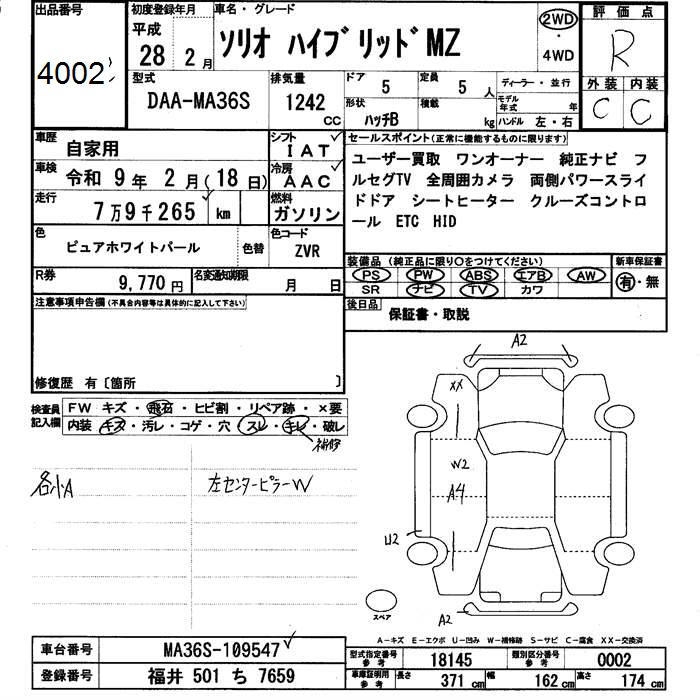 出品番号 4002
初度登録年月 平成 28 2月
車名・グレード ソリオ ハイブリッドMZ
2WD・4WD
評価点 R
型式 DAA-MA36S
排気量 1242 cc
ドア 5
定員 5 人
形状 ハッチB
積載 kg
ディーラー・並行
モデル年式 年
ハンドル 左・右
外装 C 内装 C
車歴 自家用
シフト IAT
車検 令和 9年 2月(18日)
冷房 AAC
走行 7万9千265 km
燃料 ガソリン
色 ピュアホワイトパール 色替
色コード ZVR
R券 9,770円
名変通知期限 月 日
セールスポイント(正常に機能するものに限ります)
ユーザー買取 ワンオーナー 純正ナビ フ
ルセグTV 全周囲カメラ 両側パワースライ
ドドア シートヒーター クルーズコントロ
ール ETC HID
装備品(純正品に限り○をつけてください)
PS PW ABS エアB AW
SR ナビ TV カワ
新車保証書 有・無
後日品 保証書・取説
注意事項申告欄(不具合内容等は具体的に記入して下さい)
修復歴 有〔箇所 〕
検査員記入欄
FW キズ・飛石・ヒビ割・リペア跡・×要
内装 キズ・汚レ・コゲ・穴・スレ・キレ・破レ
補修
各小A
左センターピラーW
A2
XX
W2
A4
U2
A2
スペア
A-キズ E-エクボ U-凹み W-補修跡 S-サビ C-腐食 XX-交換済
車台番号 MA36S-109547
登録番号 福井 501 ち 7659
型式指定番号 参考 18145
類別区分番号 参考 0002
車庫証明用 参考 長さ 371cm 幅 162cm 高さ 174cm